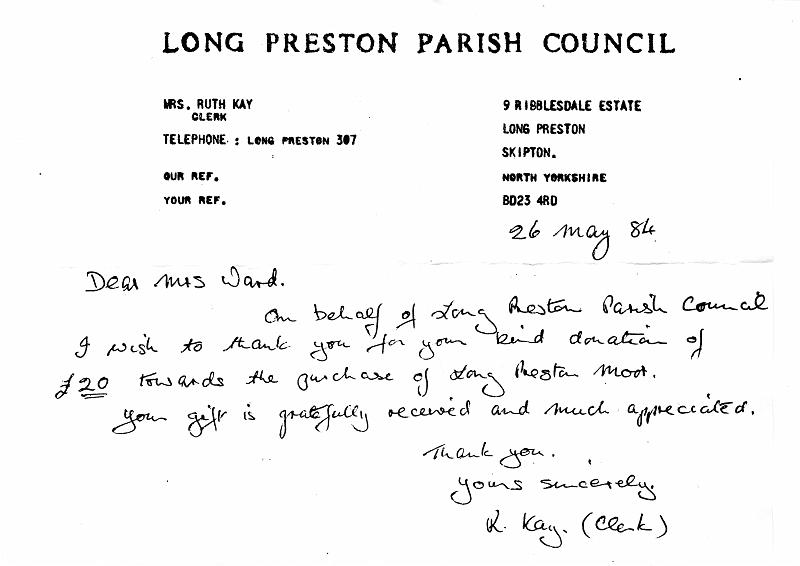 LONG PRESTON PARISH COUNCIL
MRS. RUTH KAY
CLERK
TELEPHONE : LONG PRESTON 307
OUR REF.
YOUR REF.
9 RIBBLESDALE ESTATE
LONG PRESTON
SKIPTON.
NORTH YORKSHIRE
BD23 4RD
26 May 84
Dear Mrs Ward.
On behalf of Long Preston Parish Council
I wish to thank you for your kind donation of
£20 towards the purchase of Long Preston Moor.
Your gift is gratefully received and much appreciated.
Thank you.
Yours sincerely,
R. Kay. (Clerk)